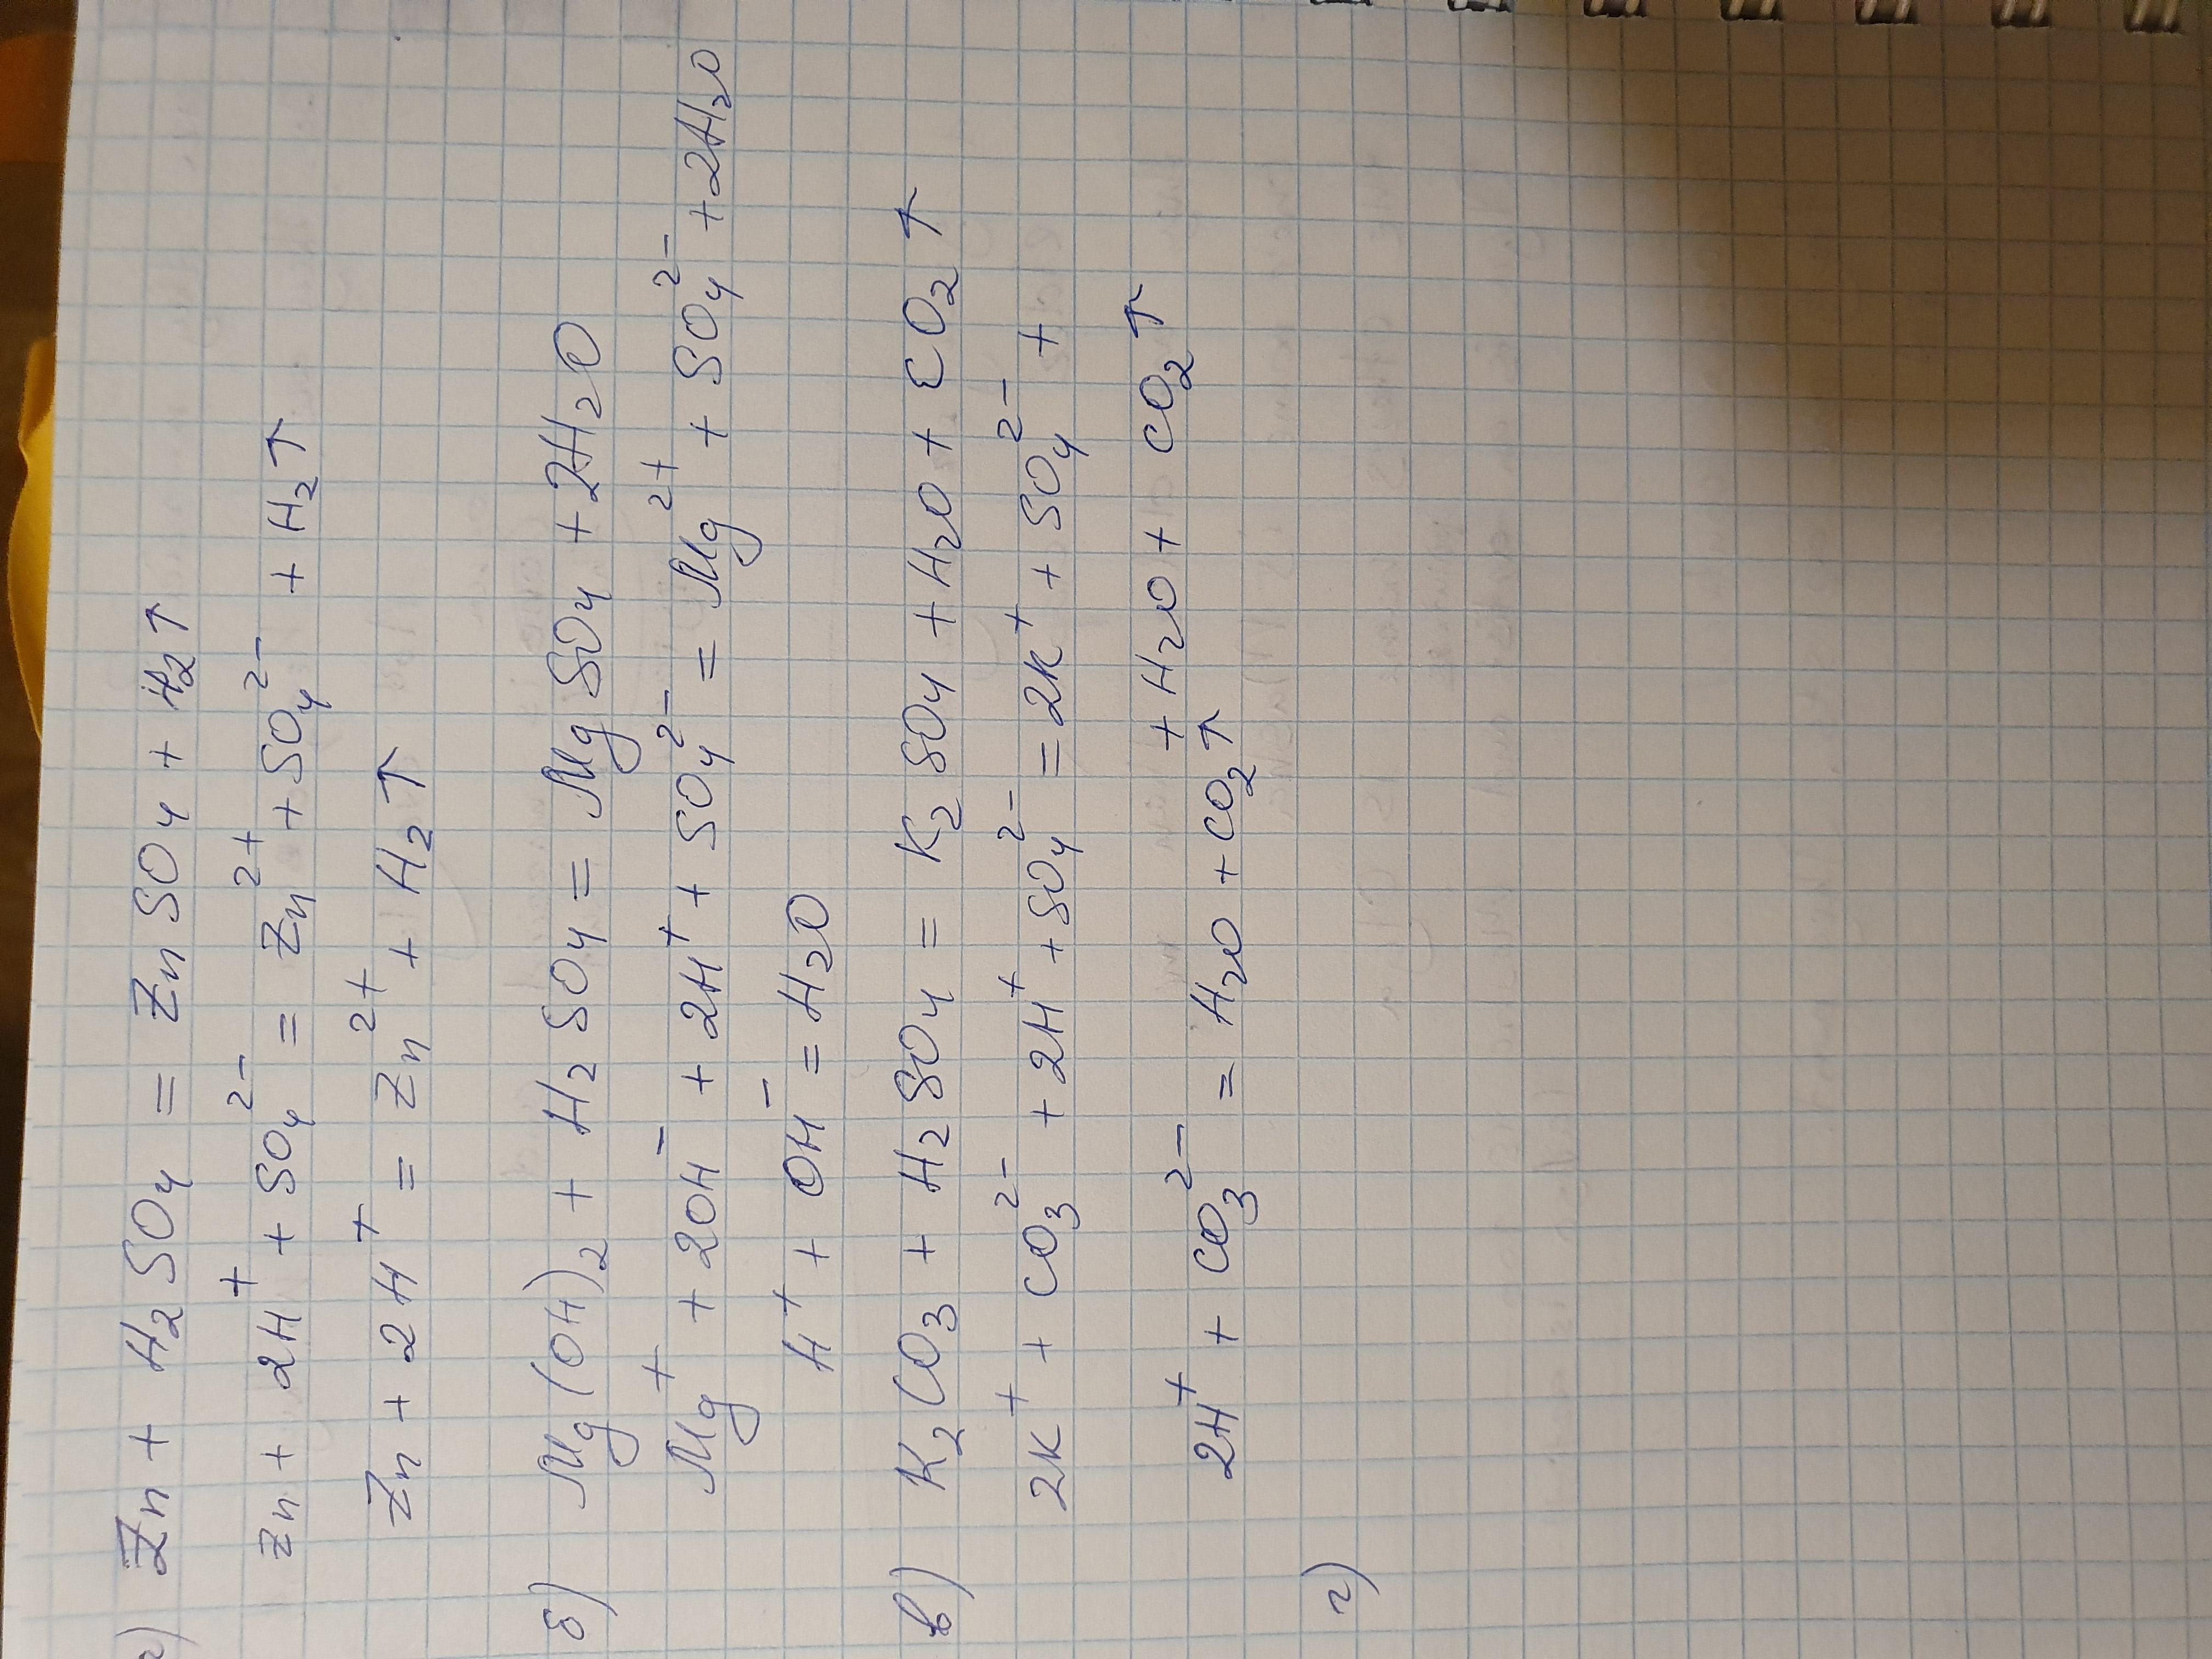 а) Zn + H₂SO₄ = ZnSO₄ + H₂↑
Zn + 2H⁺ + SO₄²⁻ = Zn²⁺ + SO₄²⁻ + H₂↑
Zn + 2H⁺ = Zn²⁺ + H₂↑
б) Mg(OH)₂ + H₂SO₄ = MgSO₄ + 2H₂O
Mg⁺ + 2OH⁻ + 2H⁺ + SO₄²⁻ = Mg²⁺ + SO₄²⁻ + 2H₂O
H⁺ + OH⁻ = H₂O
в) K₂CO₃ + H₂SO₄ = K₂SO₄ + H₂O + CO₂↑
2K⁺ + CO₃²⁻ + 2H⁺ + SO₄²⁻ = 2K⁺ + SO₄²⁻ +
+ H₂O + CO₂↑
2H⁺ + CO₃²⁻ = H₂O + CO₂↑
г)